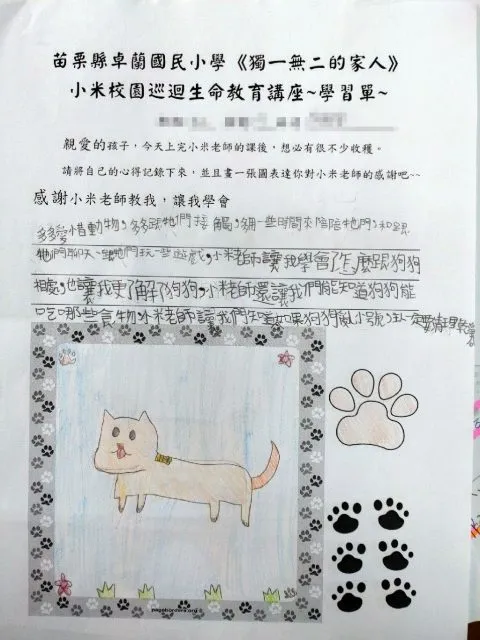 苗栗縣卓蘭國民小學《獨一無二的家人》
小米校園巡迴生命教育講座~學習單~
親愛的孩子，今天上完小米老師的課後，想必有很不少收穫。
請將自己的心得記錄下來，並且畫一張圖表達你對小米老師的感謝吧~~
感謝小米老師教我，讓我學會
多多愛惜動物，多多跟牠們接觸，用一些時間來陪陪牠們，和跟
牠們聊天、跟牠們玩一些遊戲，小米老師讓我學會了怎麼跟狗狗
相處，也讓我更了解狗狗，小米老師還讓我們能知道狗狗能
吃哪些食物，小米老師讓我們知道如果狗狗 小號，一定要清理乾
pageborders.org